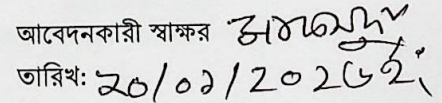 আবেদনকারী স্বাক্ষর
তারিখ: ২০/০১/২০২৫ ইং